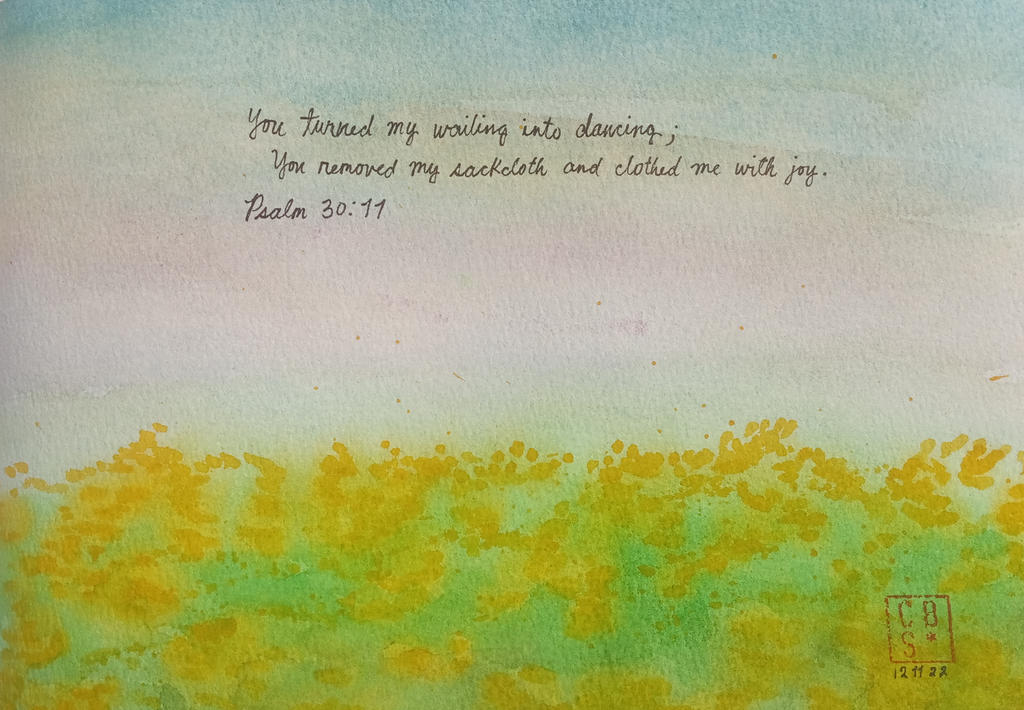 You turned my wailing into dancing;
You removed my sackcloth and clothed me with joy.
Psalm 30:11
CB
S*
12 11 22